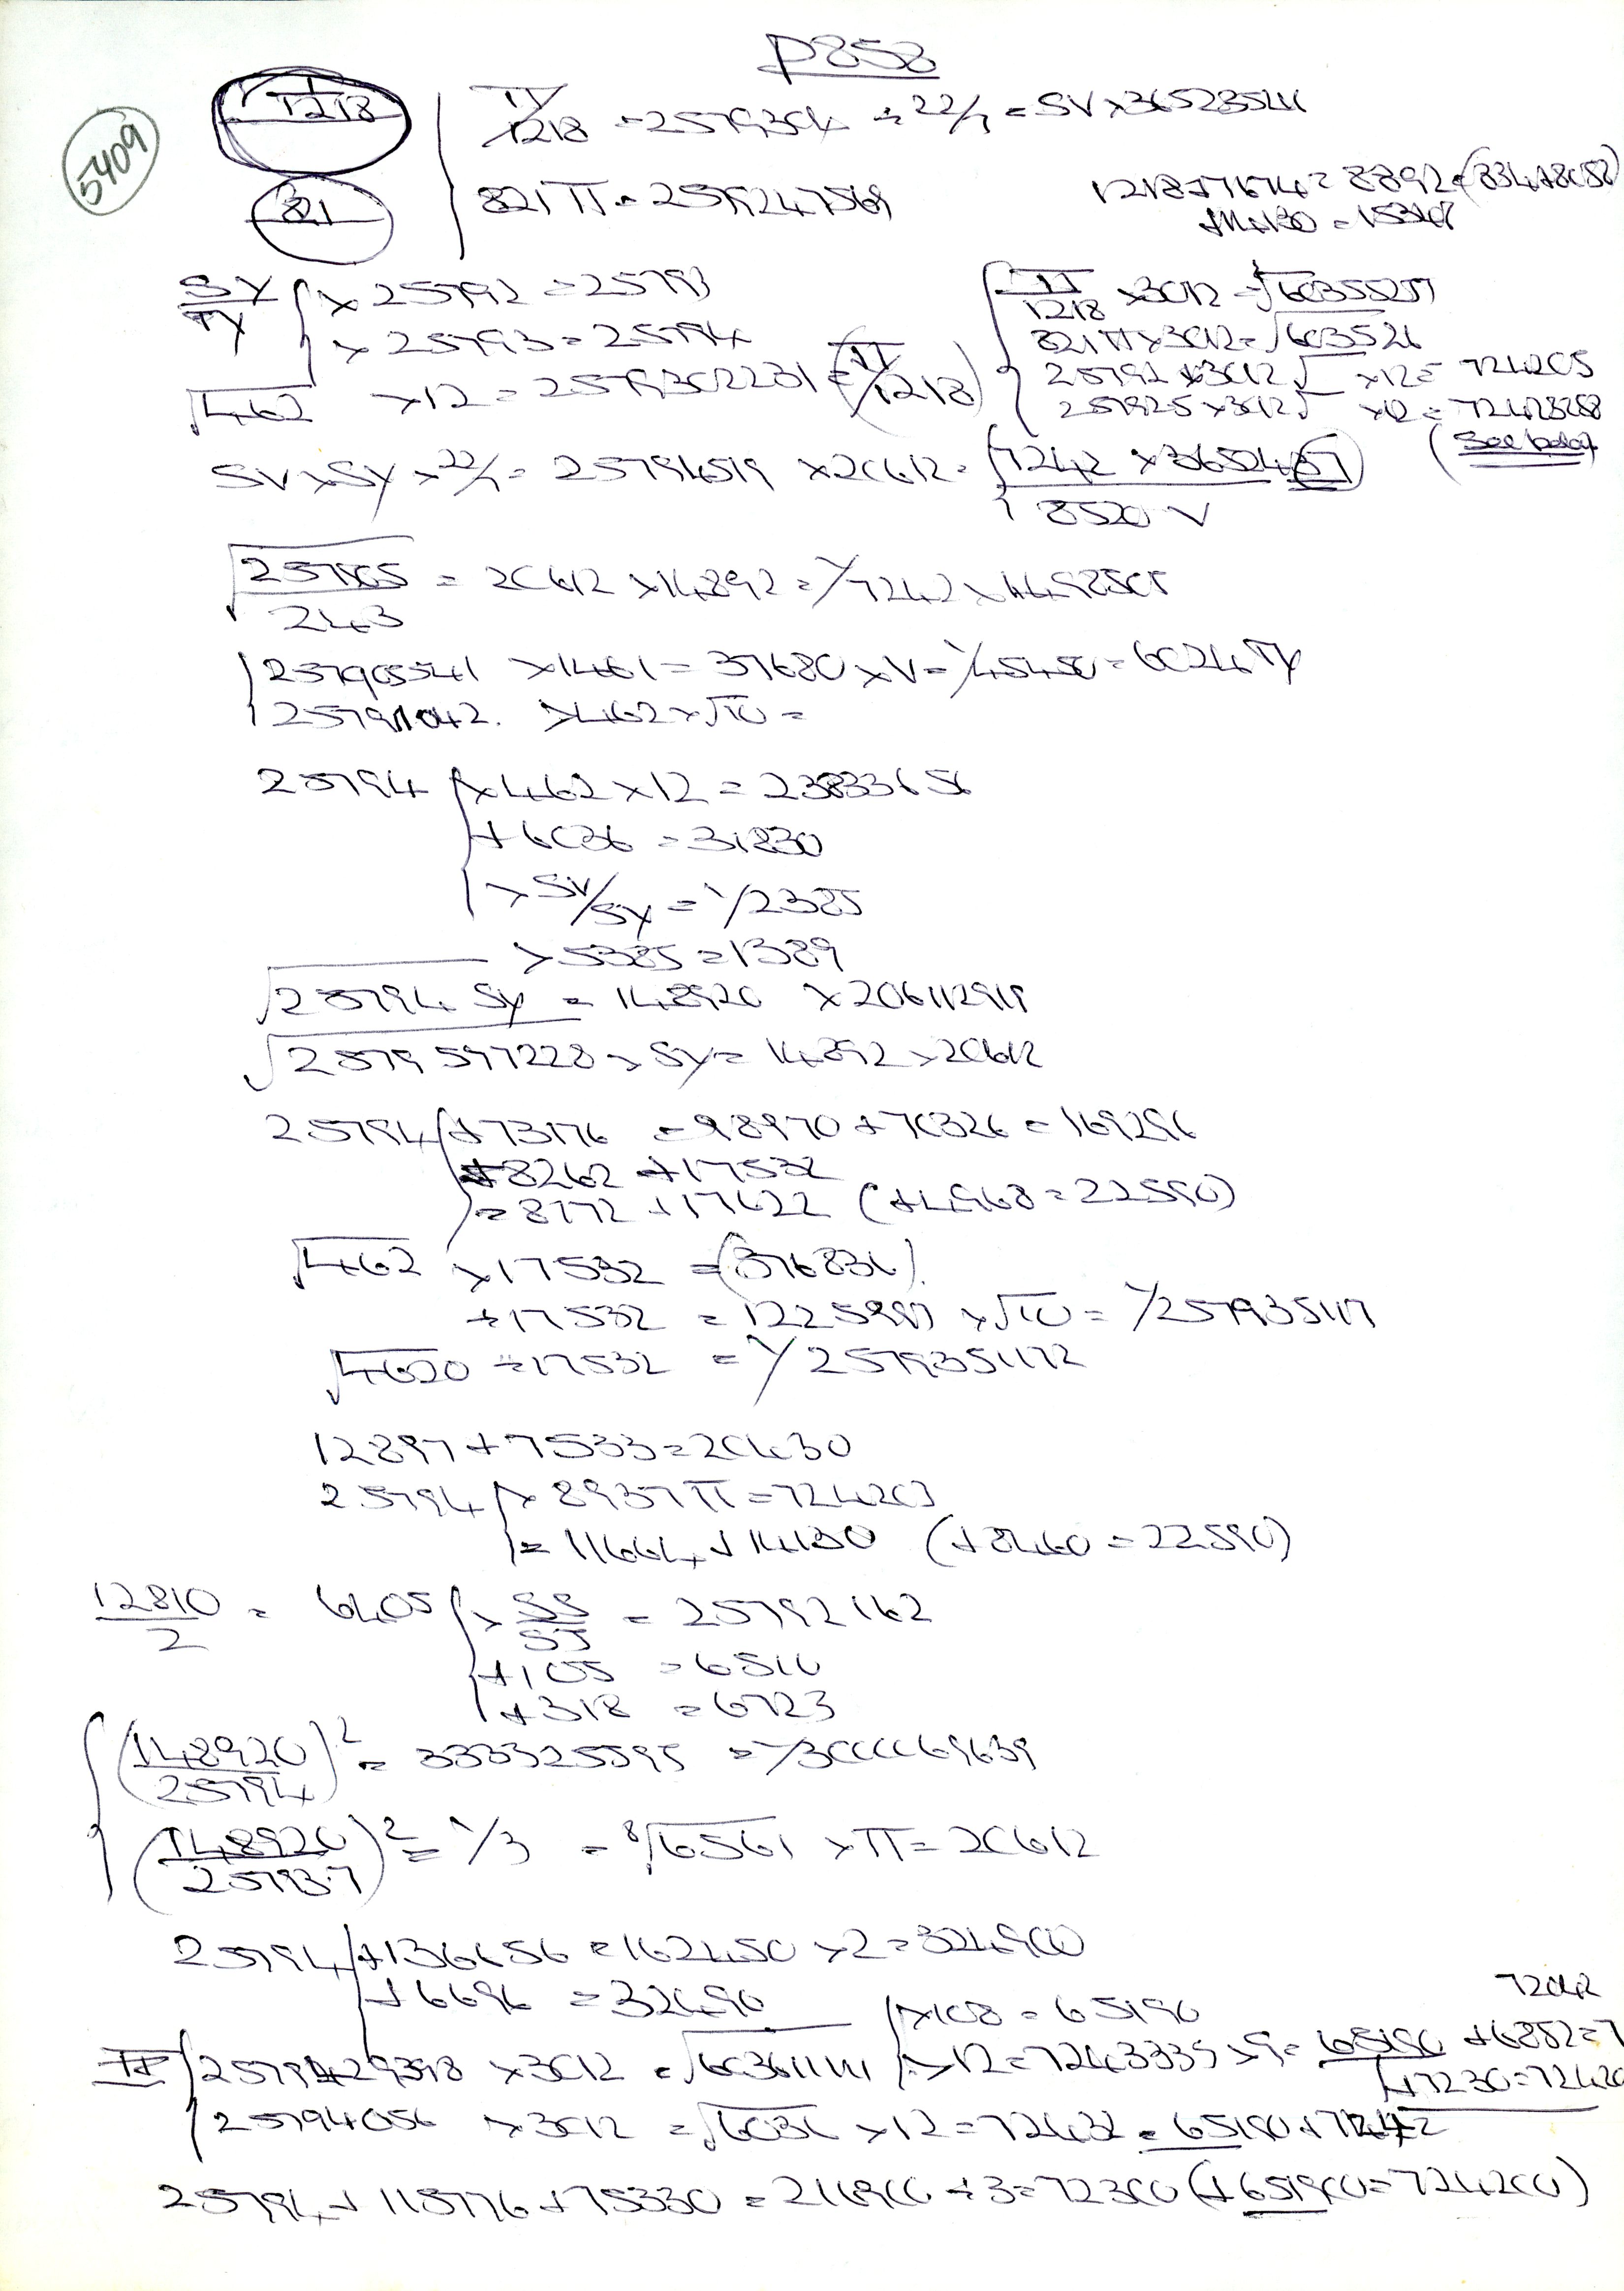 P858
5409
π/1218
821
π/1218 = 2579304 ÷ 22/7 = SV × 36523524
821π = 2579247569
1218 + 7674 = 8892 = (834 + 8058)
+ 14130 = 15348
SY/TY × 25792 = 25793
× 25793 = 25794
√462 × 12 = 2579302231 (= π/1218)
π/1218 × 3012 = √60355277
821π × 3012 = √603526
25792 × 3012 √ × 12 = 724205
257925 × 3012 √ × 12 = 72423258
(See below)
SV × SY × 22/7 = 25794519 × 20612 = √7242 × 3652487 / 8520 V
√257565/243 = 20612 × 14892 = 1/7242 × 4498505
257905541 × 1461 = 37680 × V = 1/45450 = 6024 TY
25791042. × 462 × √10 =
25794 × 462 × 12 = 23833656
+ 6036 = 31830
× SV/SY = 1/2385
× 5385 = 1389
√25794 SY = 148920 × 206112919
√2579597228 × SY = 14892 × 20612
25794 + 73176 = 98970 + 70326 = 169296
= 8262 + 17532
= 8172 + 17622 (+ 4968 = 22590)
√462 × 17532 = (376836)
÷ 17532 = 1225997 × √10 = 1/257935117
√4620 ÷ 17532 = 1/2579351172
12897 + 7533 = 20430
25794 × 8937π = 724203
= 11664 + 14130 (+ 8460 = 22590)
12810/2 = 6405 × SS/SJ = 25792162
+ 105 = 6510
+ 318 = 6723
(148920/25794)² = 333325595 = 1/3000069639
(148920/25793.7)² = 1/3 = ⁸√6561 × π = 20612
25794 + 136656 = 162450 × 2 = 324900
+ 6696 = 32490
× 108 = 65190
72042
II 2579429398 × 3012 = √60361111 × 12 = 7243333 × 9 = 65190 + 6852 = 7
+ 7230 = 72420
25794056 × 3012 = √6036 × 12 = 72432 = 65190 + 7242
25794 + 115776 + 75330 = 216900 ÷ 3 = 72300 (+ 651900 = 724200)